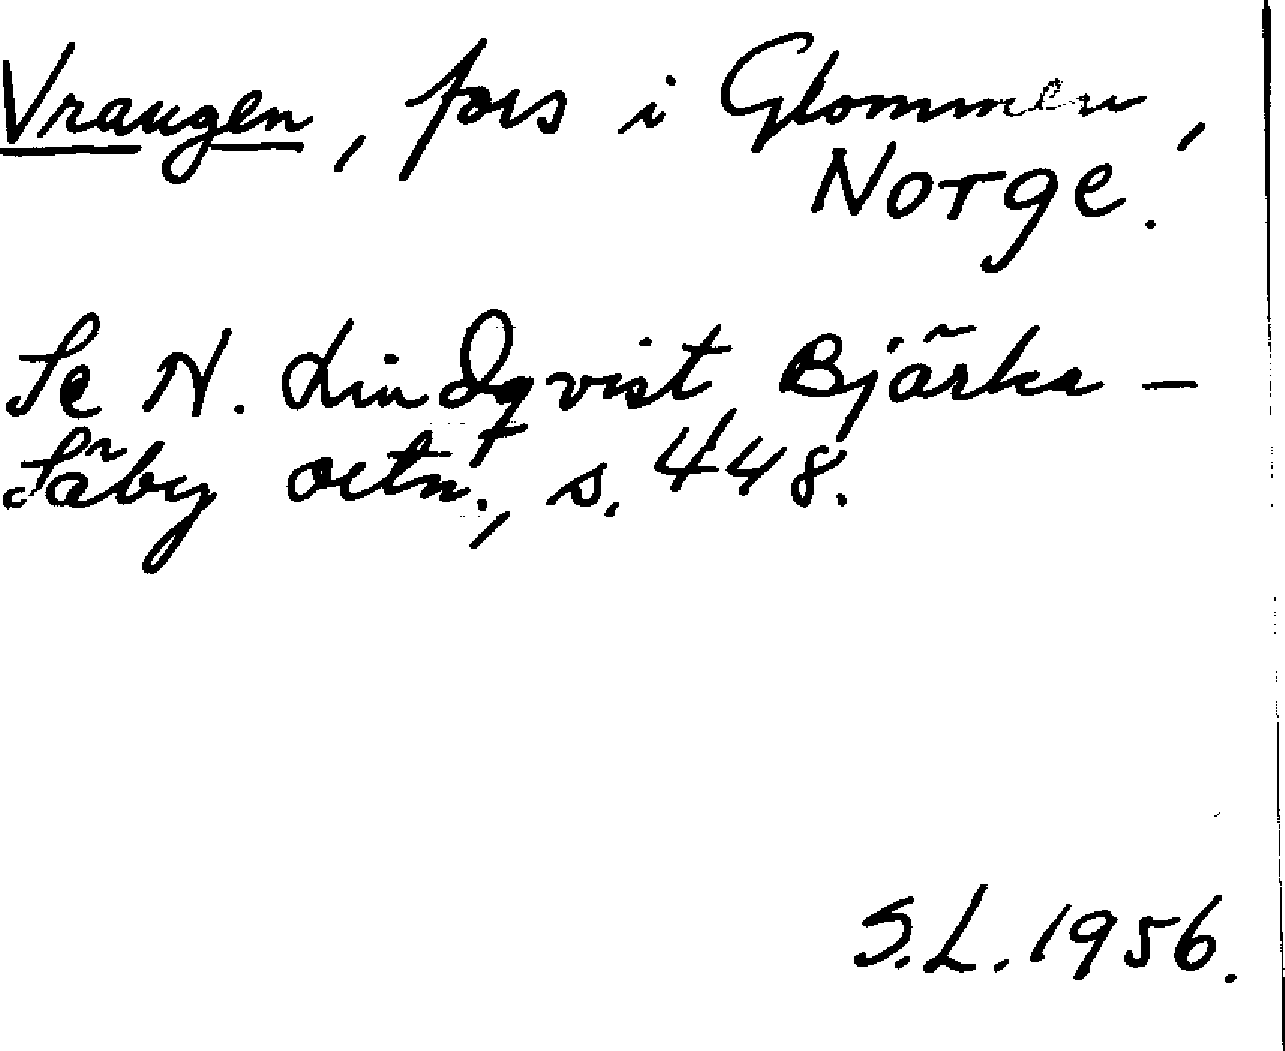 Vraugen, fors i Glommen,
Norge.
Se N. Lindqvist, Bjärka-
Säby ortn., s. 448.
S.L. 1956.